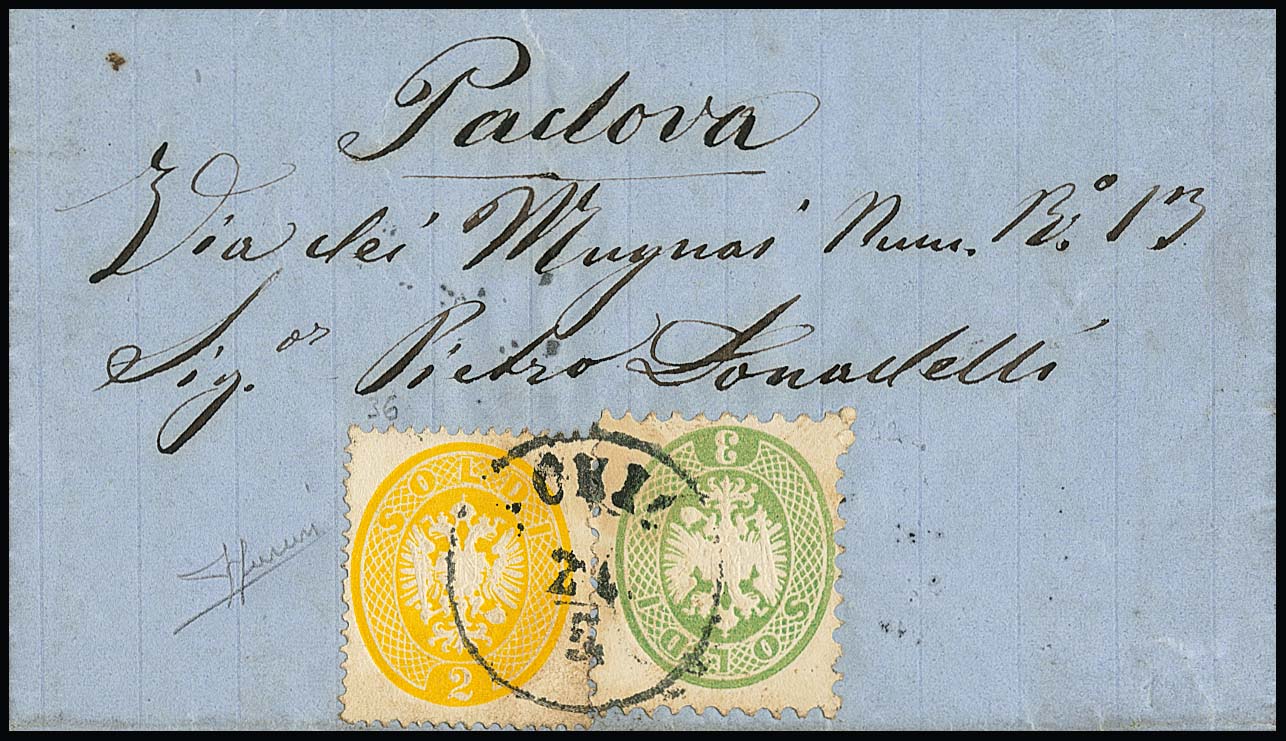 Padova
Via dei Mugnai Num. R.º 13
Sig.or Pietro Donadelli
36
SOLDI 2
3 SOLDI
CHI
24
5